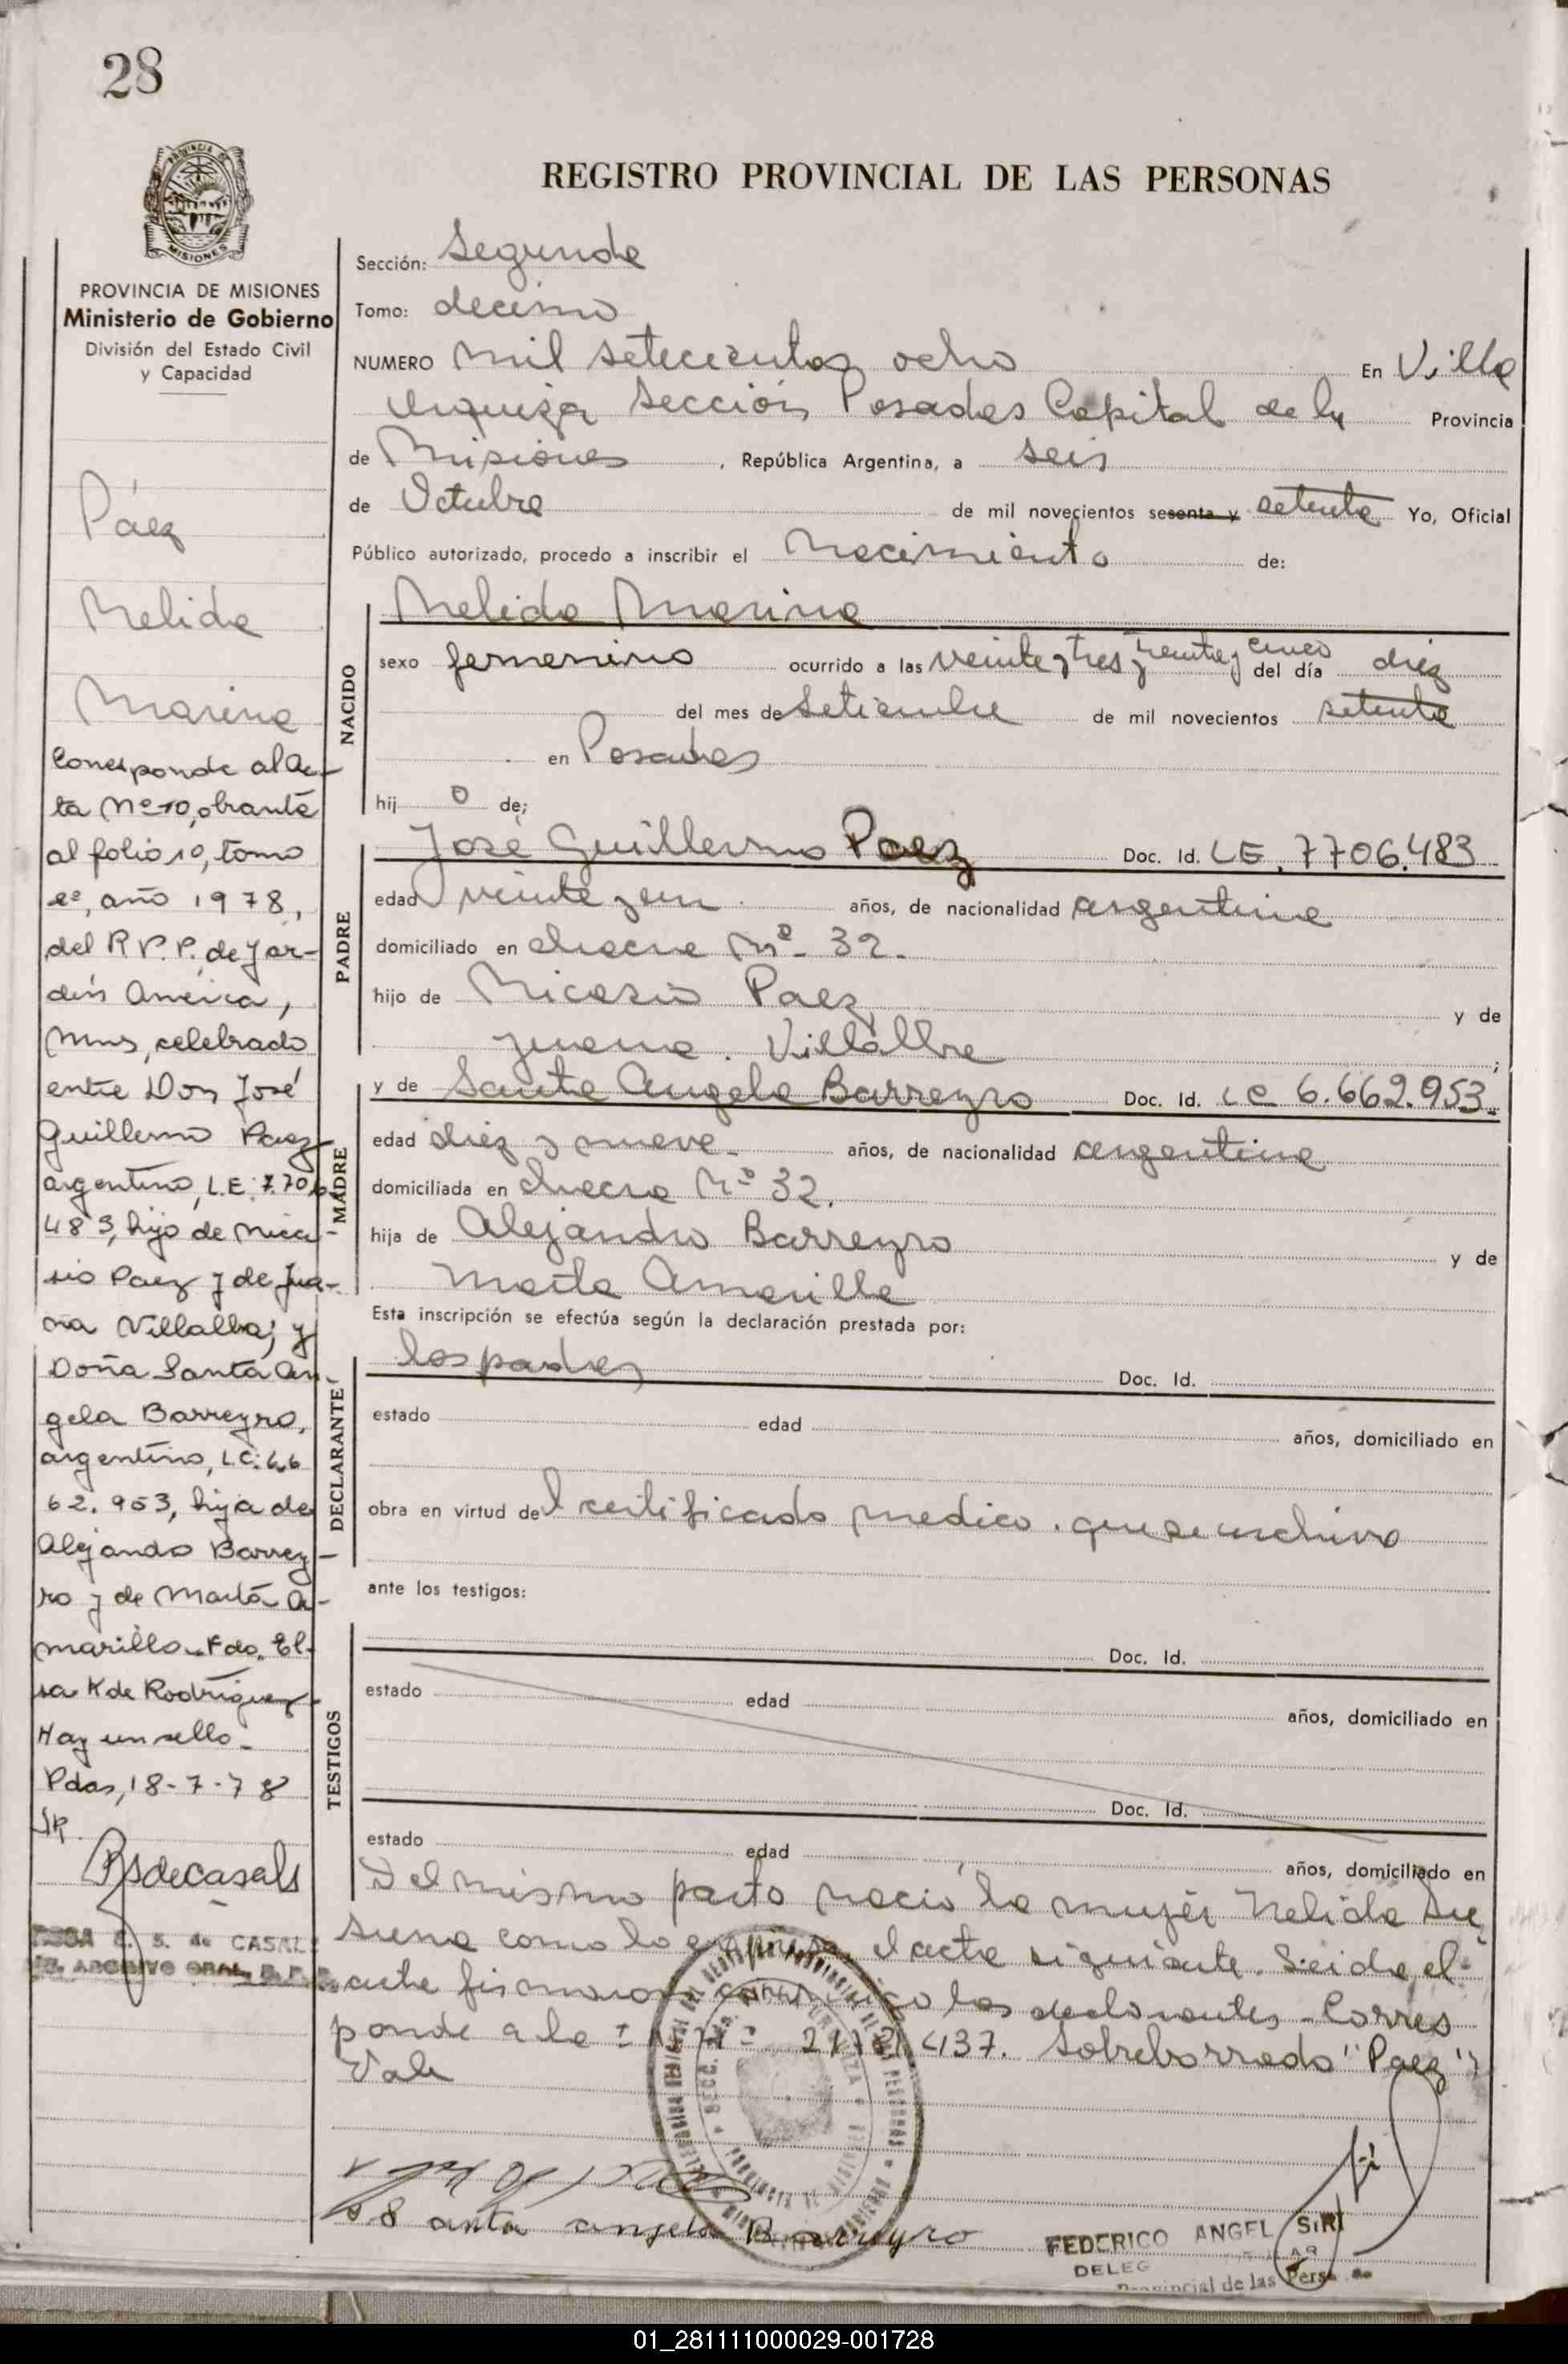 28
REGISTRO PROVINCIAL DE LAS PERSONAS
PROVINCIA DE MISIONES
Ministerio de Gobierno
División del Estado Civil
y Capacidad
Páez
Nelida
Marina
Corresponde al Ac-
ta Nº 10, obrante
al folio 10, tomo
eº, año 1978,
del R.P.P. de Jar-
dín América,
Mnes, celebrado
entre Don José
Guillermo Paez
argentino, L.E: 7.706
483, hijo de Nica-
sio Paez y de Jua-
na Villalba; y
Doña Santa An-
gela Barreyro,
argentino, L.C: 6.6
62.953, hija de
Alejandro Barrey-
ro y de Marta A-
marillo. Fdo. El-
sa K de Rodriguez
Hay un sello-
Pdas, 18-7-78
RSdecasals
S. de CASAL
ARCHIVO GRAL.
Sección: Segunda
Tomo: decimo
NUMERO mil setecientos ocho En Villa
Urquiza Sección Posadas Capital de la Provincia
de Misiones , República Argentina, a seis
de Octubre de mil novecientos sesenta y setenta Yo, Oficial
Público autorizado, procedo a inscribir el Nacimiento de:
NACIDO
Nelida Marina
sexo femenino ocurrido a las veinte y tres y treinta y cinco del día diez
del mes de Setiembre de mil novecientos setenta
en Posadas
hij o de;
PADRE
José Guillermo Paez Doc. Id. LE. 7706.483
edad veinte y un años, de nacionalidad argentina
domiciliado en chacra Nº- 32.
hijo de Nicasio Paez y de
Juana. Villalba ;
MADRE
y de Santa Angela Barreyro Doc. Id. LC 6.662.953.
edad diez y nueve- años, de nacionalidad argentina
domiciliada en chacra Nº 32.
hija de Alejandro Barreyro y de
Marta Amarilla
Esta inscripción se efectúa según la declaración prestada por:
DECLARANTE
los padres Doc. Id.
estado edad años, domiciliado en
obra en virtud del certificado medico. que se archiva
ante los testigos:
TESTIGOS
Doc. Id.
estado edad años, domiciliado en
Doc. Id.
estado edad años, domiciliado en
Del mismo parto nació la mujer Nelida Su
sana como lo expresa el acta siguiente. Leida el
acta firmaron conmigo los declarantes- Corres
ponde a la 21781437. Sobreborrado "Paez"
Vale
Santa angela Barreyro
FEDERICO ANGEL SIRI
DELEG
Provincial de las Pers
01_281111000029-001728